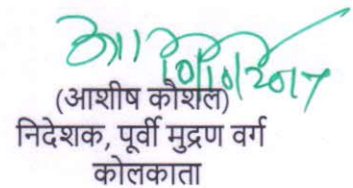 10/10/2017
(आशीष कौशल)
निदेशक, पूर्वी मुद्रण वर्ग
कोलकाता